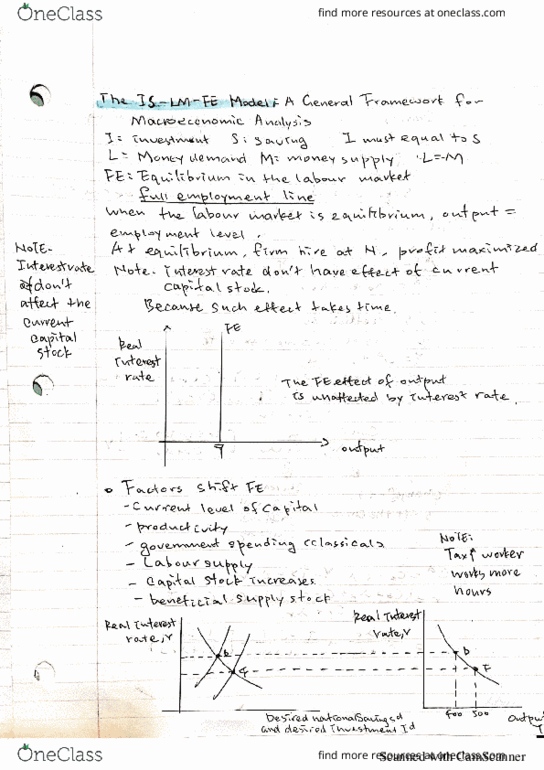 OneClass
find more resources at oneclass.com
The IS-LM-FE Model: A General Framework for
Macroeconomic Analysis
I = investment S: saving I must equal to S
L = Money demand M: money supply L=M
FE: Equilibrium in the labour market
full employment line
when the labour market is equilibrium, output =
employment level.
At equilibrium, firm hire at N, profit maximized
Note. interest rate don't have effect of current
capital stock.
Because such effect takes time.
Note-
Interest rate
don't
affect the
current
capital
stock
Real
interest
rate
FE
The FE effect of output
is unaffected by interest rate.
output
Factors shift FE
- Current level of capital
- productivity
- government spending (classicals)
- Labour supply
- capital stock increases
- beneficial supply stock
Note:
Tax↑ worker
works more
hours
Real interest
rate, r
Desired national saving sd
and desired investment Id
Real interest
rate, r
400 500
Output
OneClass
find more resources at oneclass.com
Scanned with CamScanner